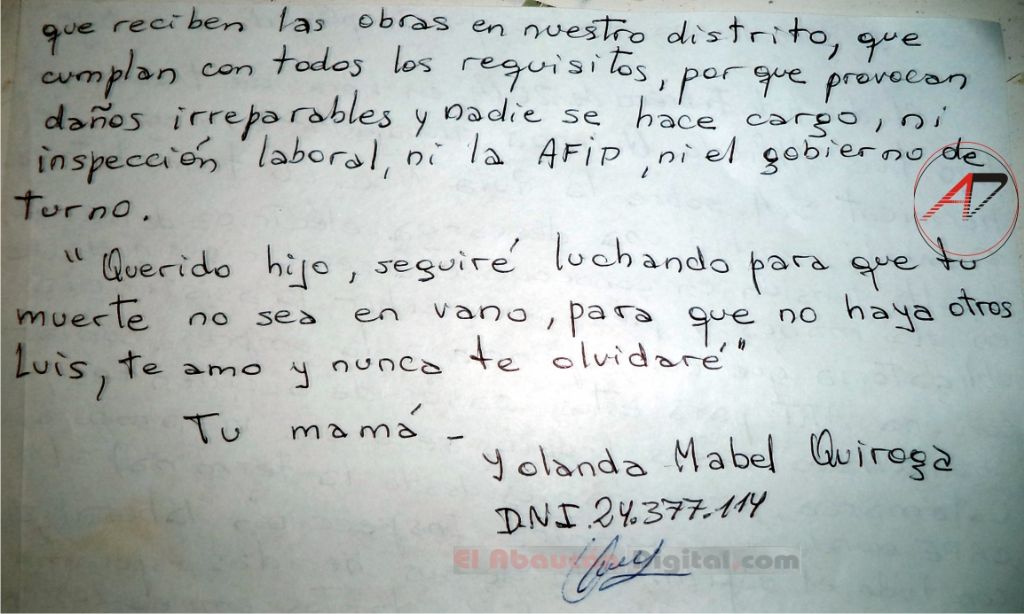 que reciben las obras en nuestro distrito, que
cumplan con todos los requisitos, por que provocan
daños irreparables y nadie se hace cargo, ni
inspección laboral, ni la AFIP, ni el gobierno de
turno.
"Querido hijo, seguiré luchando para que tu
muerte no sea en vano, para que no haya otros
Luis, te amo y nunca te olvidaré"
Tu mamá -
Yolanda Mabel Quiroga
DNI. 24.377.114
El Abaucán Digital.com
AD